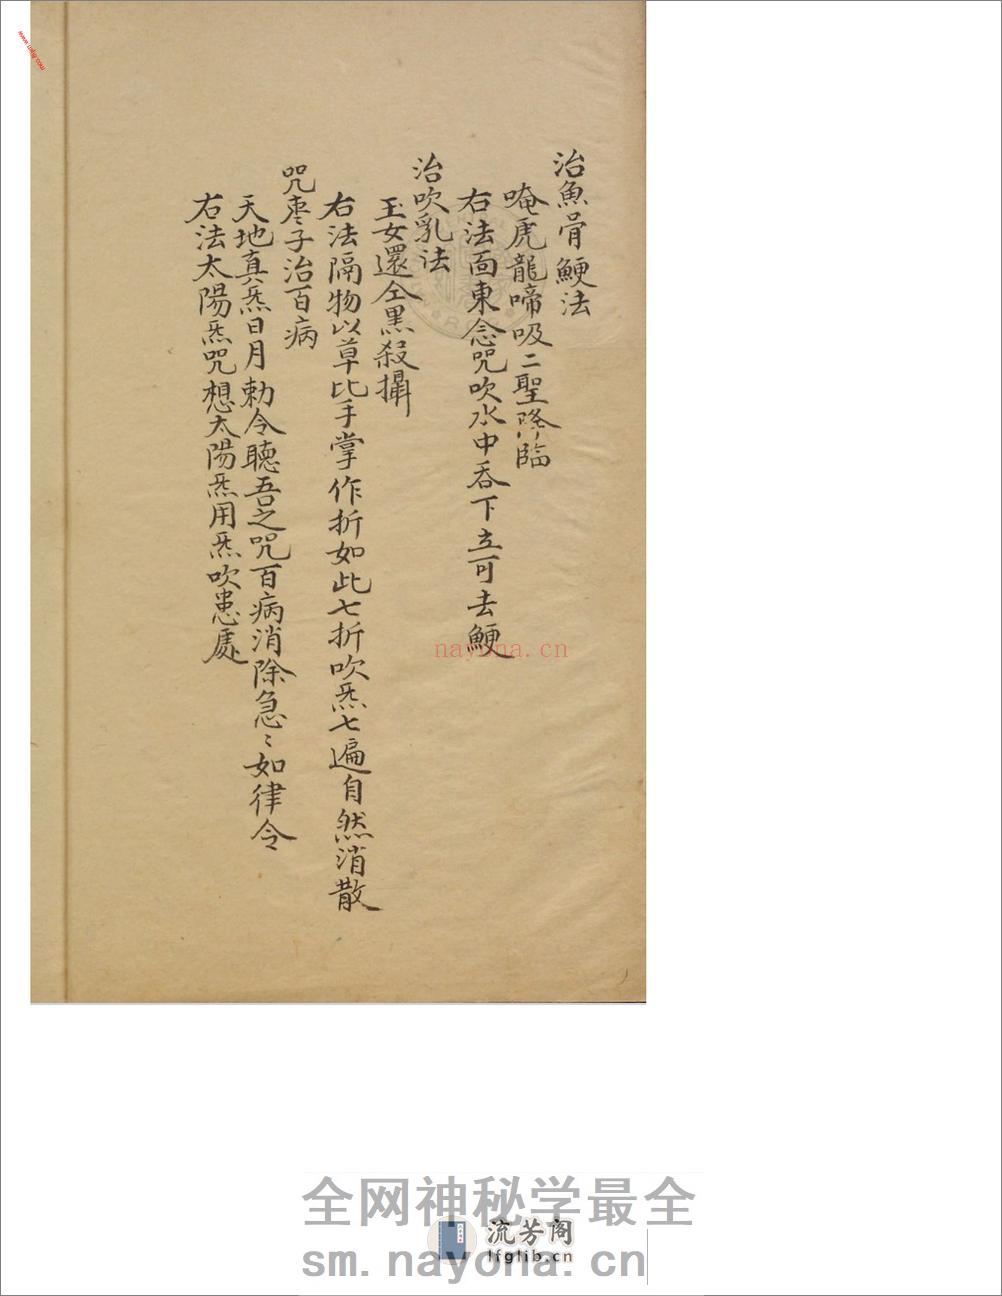 治魚骨鯁法
唵虎龍啼吸二聖降臨
右法面東念咒吹水中吞下立可去鯁
治吹乳法
玉女還仝黑殺攝
右法隔物以草比手掌作折如此七折吹炁七遍自然消散
咒枣子治百病
天地真炁日月勅令聽吾之咒百病消除急〻如律令
右法太陽炁咒想太陽炁用炁吹患處
nayona.cn
全网神秘学最全
流芳阁
lfglib.cn
sm.nayona.cn